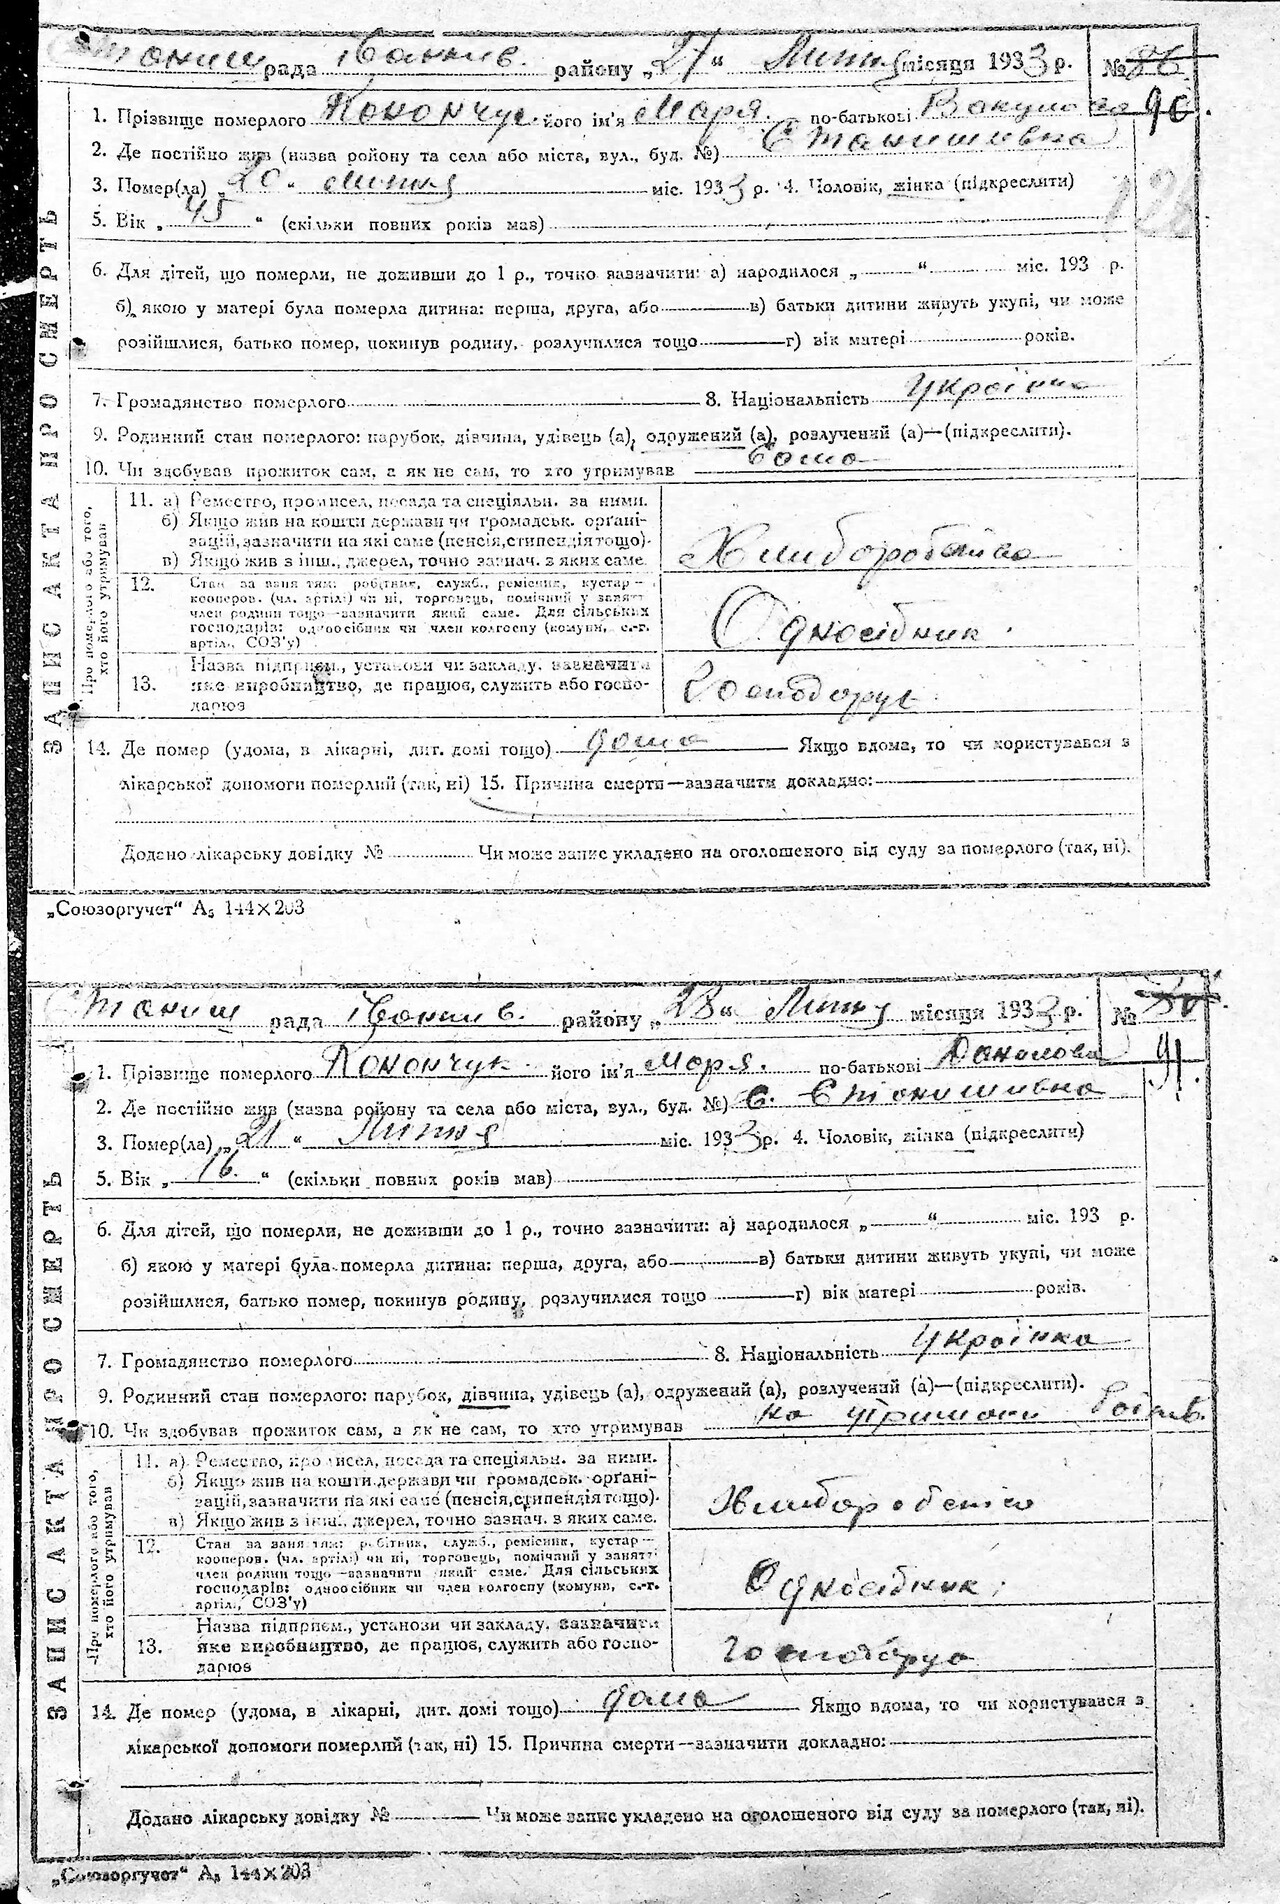 Станиш рада Іванків. району „27“ Лютня місяця 1933 р. № 86
90.
1. Прізвище померлого Конончук його ім'я Марія по-батькові Вакулова
2. Де постійно жив (назва району та села або міста, вул., буд. №) Станишивка
3. Помер(ла) „20“ лютня міс. 1933 р. 4. Чоловік, жінка (підкреслити)
126
5. Вік „45“ (скільки повних років мав)
6. Для дітей, що померли, не доживши до 1 р., точно зазначити: а) народилося „ “ міс. 193 р.
б) якою у матері була померла дитина: перша, друга, або в) батьки дитини живуть укупі, чи може
розійшлися, батько помер, покинув родину, розлучилися тощо г) вік матері років.
7. Громадянство померлого 8. Національність Українка
9. Родинний стан померлого: парубок, дівчина, удівець (а), одружений (а), розлучений (а)—(підкреслити).
10. Чи здобував прожиток сам, а як не сам, то хто утримував Сама
ЗАПИС АКТА ПРО СМЕРТЬ
Про померлого або того, хто його утримував
11. а) Ремество, промисел, посада та спеціяльн. за ними.
б) Якщо жив на кошти держави чи громадськ. орґані-
зацій, зазначити на які саме (пенсія, стипендія тощо).
в) Якщо жив з інш. джерел, точно зазнач. з яких саме.
Хлиборобство
12. Стан за занятям: робітник, служб., ремісник, кустар—
кооперов. (чл. артілі) чи ні, торговець, помічний у занятт
член родини тощо—зазначити який саме. Для сільських
господарів: одноосібник чи член колгоспу (комуни, с.-г.
артіл., СОЗ'у)
Односібник.
13. Назва підприєм., установи чи закладу, зазначити
яке виробництво, де працює, служить або госпо-
дарює
Господарує
14. Де помер (удома, в лікарні, дит. домі тощо) дома Якщо вдома, то чи користувався з
лікарської допомоги померлий (так, ні) 15. Причина смерти—зазначити докладно:
Додано лікарську довідку № Чи може запис укладено на оголошеного від суду за померлого (так, ні).
„Союзоргучет“ А₅ 144×203
Станиш рада Іванків. району „28“ Лютня місяця 1933 р. №
91.
1. Прізвище померлого Конончук його ім'я Марія. по-батькові Данилова
2. Де постійно жив (назва району та села або міста, вул., буд. №) с. Станишивка
3. Помер(ла) „21“ Лютня міс. 1933 р. 4. Чоловік, жінка (підкреслити)
5. Вік „16.“ (скільки повних років мав)
6. Для дітей, що померли, не доживши до 1 р., точно зазначити: а) народилося „ “ міс. 193 р.
б) якою у матері була померла дитина: перша, друга, або в) батьки дитини живуть укупі, чи може
розійшлися, батько помер, покинув родину, розлучилися тощо г) вік матері років.
7. Громадянство померлого 8. Національність Українка
9. Родинний стан померлого: парубок, дівчина, удівець (а), одружений (а), розлучений (а)—(підкреслити).
10. Чи здобував прожиток сам, а як не сам, то хто утримував на утримани
ЗАПИС АКТА ПРО СМЕРТЬ
Про померлого або того, хто його утримував
11. а) Ремество, промисел, посада та спеціяльн. за ними.
б) Якщо жив на кошти держави чи громадськ. орґані-
зацій, зазначити на які саме (пенсія, стипендія тощо).
в) Якщо жив з інш. джерел, точно зазнач. з яких саме.
Хлиборобство
12. Стан за занятям: робітник, служб., ремісник, кустар—
кооперов. (чл. артілі) чи ні, торговець, помічний у занятт
член родини тощо—зазначити який саме. Для сільських
господарів: одноосібник чи член колгоспу (комуни, с.-г.
артіл., СОЗ'у)
Односібник.
13. Назва підприєм., установи чи закладу, зазначити
яке виробництво, де працює, служить або госпо-
дарює
Господарує
14. Де помер (удома, в лікарні, дит. домі тощо) дома Якщо вдома, то чи користувався з
лікарської допомоги померлий (так, ні) 15. Причина смерти—зазначити докладно:
Додано лікарську довідку № Чи може запис укладено на оголошеного від суду за померлого (так, ні).
„Союзоргучет“ А₅ 144×203